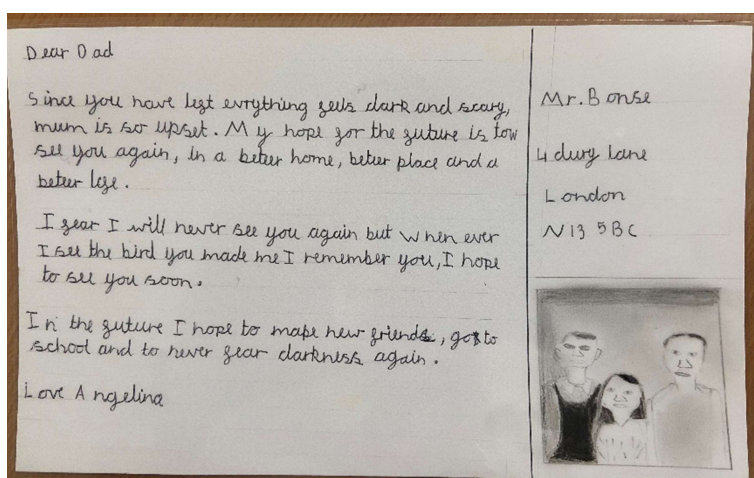 Dear Dad
Since you have left evrything feels dark and scary,
mum is so upset. My hope for the future is tow
see you again, in a better home, better place and a
better life.
I fear I will never see you again but when ever
I see the bird you made me I remember you, I hope
to see you soon.
In the future I hope to make new friends, go to
school and to never fear darkness again.
Love Angelina
Mr. Bonse
4 dury lane
London
N13 5BC